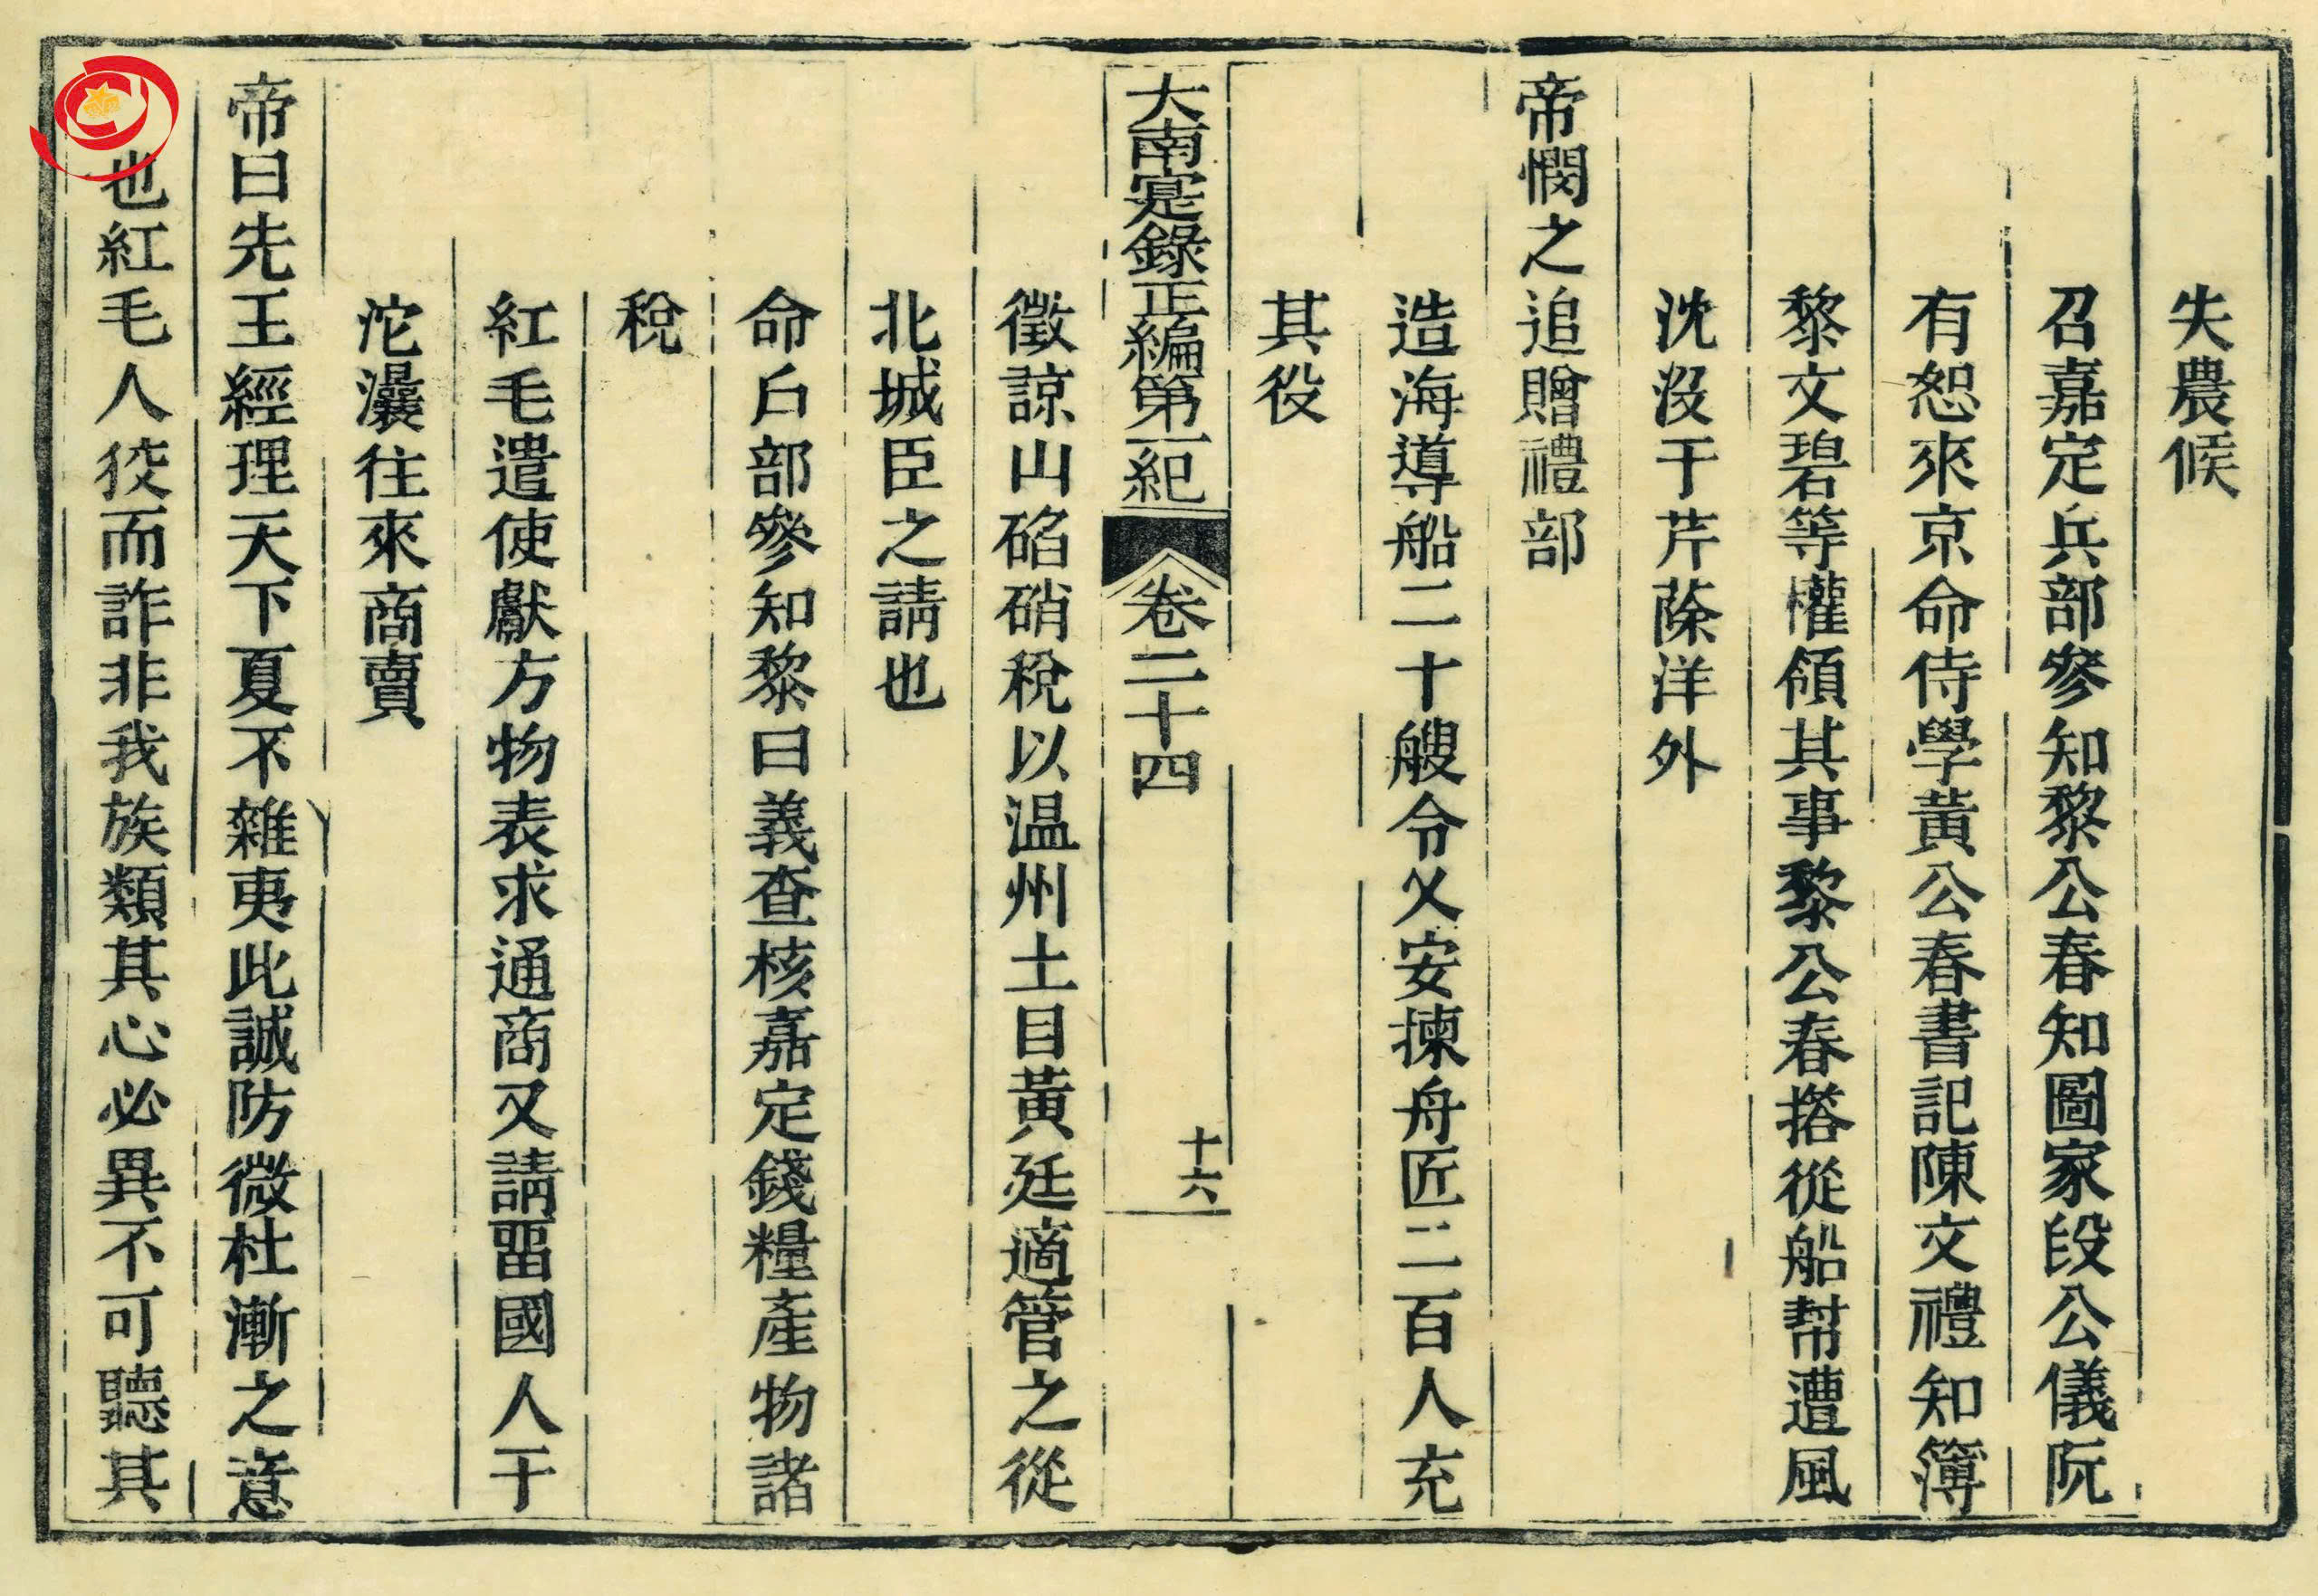 失農候
召嘉定兵部參知黎公春知圖家段公儀阮
有恕來京命侍學黃公春書記陳文禮知簿
黎文碧等權領其事黎公春搭從船幇遭風
沈没于芹蒢洋外
帝憫之追贈禮部
造海導船二十艘令乂安揀舟匠二百人充
其役
大南寔錄正編第一紀 卷二十四 十六
徵諒山硝稅以温州土目黃廷適管之從
北城臣之請也
命戶部參知黎曰義查核嘉定錢糧產物諸
稅
紅毛遣使獻方物表求通商又請畱國人于
沱灢往來商賣
帝曰先王經理天下夏不雜夷此誠防微杜漸之意
也紅毛人狡而詐非我族類其心必異不可聽其